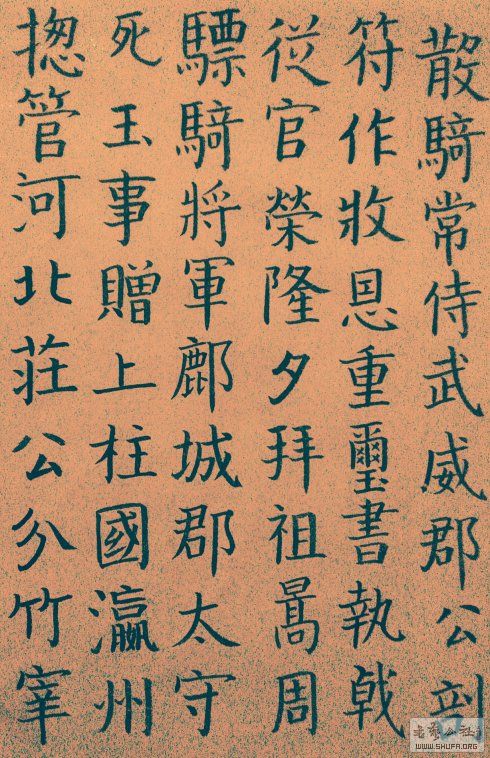 散騎常侍武威郡公剖
符作牧恩重璽書執戟
從官榮隆夕拜祖暠周
驃騎將軍鄜城郡太守
死玉事贈上柱國瀛州
揔管河北莊公分竹宰
WWW.SHUFA.ORG